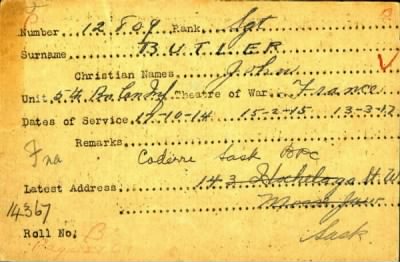 Number 12709 Rank Sgt
Surname BUTLER
Christian Names John
Unit 5th Bn Can Inf Theatre of War France
Dates of Service 17-10-14 15-2-15 13-3-17
Remarks
Coderre Sask
Latest Address 143 Hochelaga St W
14367 Moose Jaw
Roll No. B Sask
Page